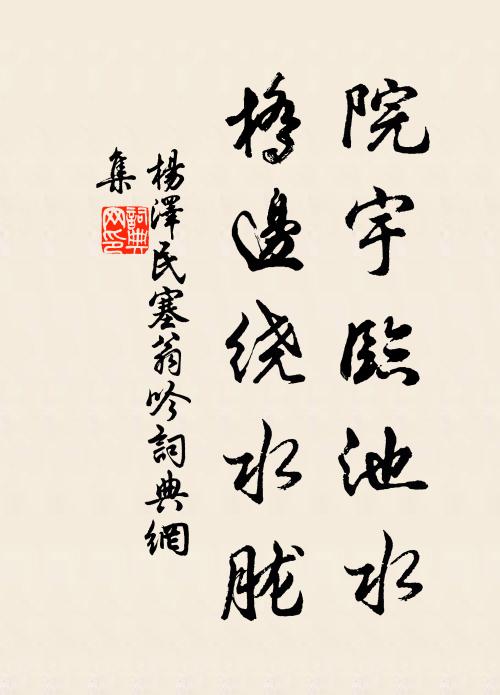 院宇臨池水
橋邊绕水胧
楊澤民塞翁吟詞典網
集
詞典网印